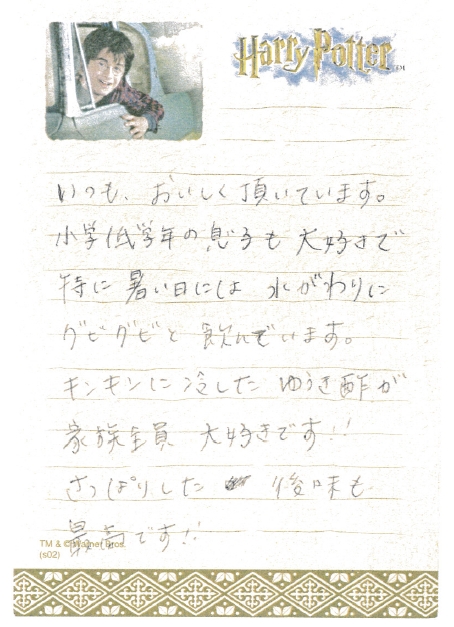 Harry Potter™
いつも、おいしく頂いています。
小学低学年の息子も大好きで
特に暑い日には水がわりに
グビグビと飲んでいます。
キンキンに冷したゆうき酢が
家族全員 大好きです!!
さっぱりした 後味も
最高です!!
TM & © Warner Bros.
(s02)